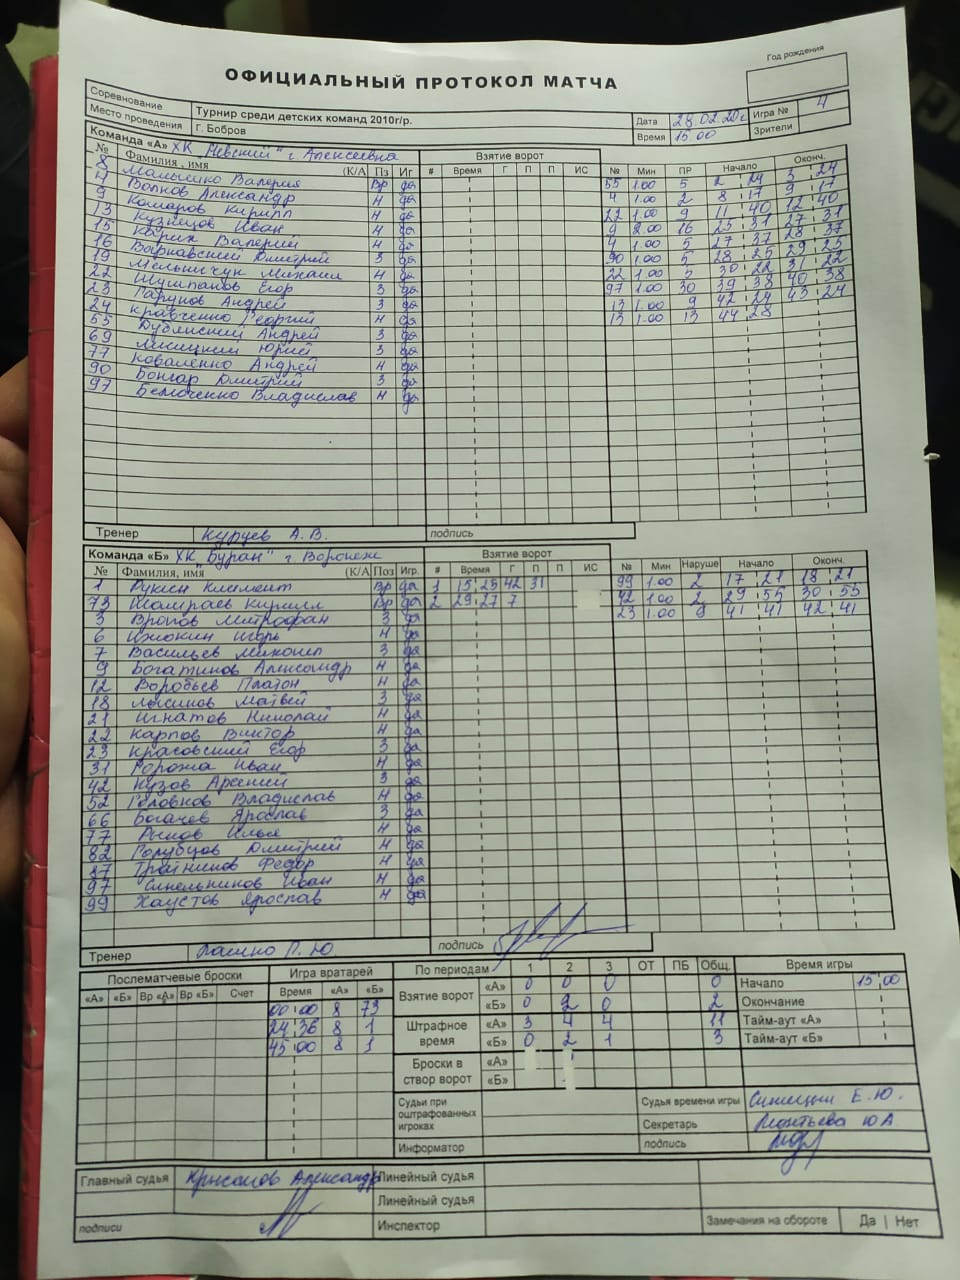 Год рождения
ОФИЦИАЛЬНЫЙ ПРОТОКОЛ МАТЧА
Соревнование Турнир среди детских команд 2010г/р. Дата 28.02.20г Игра № 4
Место проведения Г. Бобров Время 15 00 Зрители
Команда «А» ХК "Невский" г. Алексеевка Взятие ворот
№ Фамилия , имя (К/А Пз Иг # Время Г П П ИС № Мин ПР Начало Оконч.
8 Малышко Валерия Вр да 55 1.00 5 2 24 3 24
4 Волков Александр Н да 4 1.00 2 8 17 9 17
9 Комаров Кирилл Н да 22 1.00 9 11 40 12 40
13 Кузнецов Иван Н да 9 2.00 16 25 31 27 31
15 Карих Валерий Н да 4 1.00 5 27 37 28 37
16 Варкавский Дмитрий З да 90 1.00 5 28 25 29 25
19 Мельничук Михаил Н да 22 1.00 5 30 22 31 22
22 Шушпанов Егор З да 97 1.00 30 39 38 40 38
23 Гарунов Андрей З да 13 1.00 9 42 24 43 24
24 Кравченко Георгий Н да 13 1.00 13 44 28
55 Дублинский Андрей З да
69 Лисицкий Юрий З да
77 Коваленко Андрей Н да
90 Бонгар Дмитрий З да
97 Бемоченко Владислав Н да
Тренер Куруев А. В. подпись
Команда «Б» ХК "Буран" г. Воронеж Взятие ворот
№ Фамилия, имя (К/А Поз Игр. # Время Г П П ИС № Мин Наруше Начало Оконч.
1 Рукин Климент Вр да 1 15 25 42 31 99 1.00 2 17 21 18 21
73 Вр да 2 29 27 7 42 1.00 2 29 55 30 55
3 Митрофан З да 23 1.00 9 41 41 42 41
6 Игорь Н да
7 Васильев Михаил З да
9 Богатинов Александр Н да
12 Воробьев Платон Н да
18 Лысиков Матвей З да
21 Игнатов Николай Н да
22 Карпов Виктор Н да
23 Красовский Егор З да
31 Горожа Иван Н да
42 Кузов Арсений З да
52 Головков Владислав Н да
66 Богачев Ярослав З да
77 Рыжов Илья Н да
82 Голубцов Дмитрий Н да
87 Тройников Федор Н да
97 Синельников Иван Н да
99 Хаустов Ярослав Н да
Тренер Лашко П. Ю подпись
Послематчевые броски Игра вратарей По периодам 1 2 3 ОТ ПБ Общ. Время игры
«А» «Б» Вр «А» Вр «Б» Счет Время «А» «Б» Взятие ворот «А» 0 0 0 0 Начало 15 00
00 00 8 73 «Б» 0 2 0 2 Окончание
24 36 8 1 Штрафное время «А» 3 4 4 11 Тайм-аут «А»
45 00 8 1 «Б» 0 2 1 3 Тайм-аут «Б»
Броски в створ ворот «А»
«Б»
Судьи при оштрафованных игроках Судья времени игры Е. Ю.
Секретарь Леонтьева Ю А
Информатор подпись
Главный судья Александр Линейный судья
Линейный судья
подписи Инспектор Замечания на обороте Да | Нет